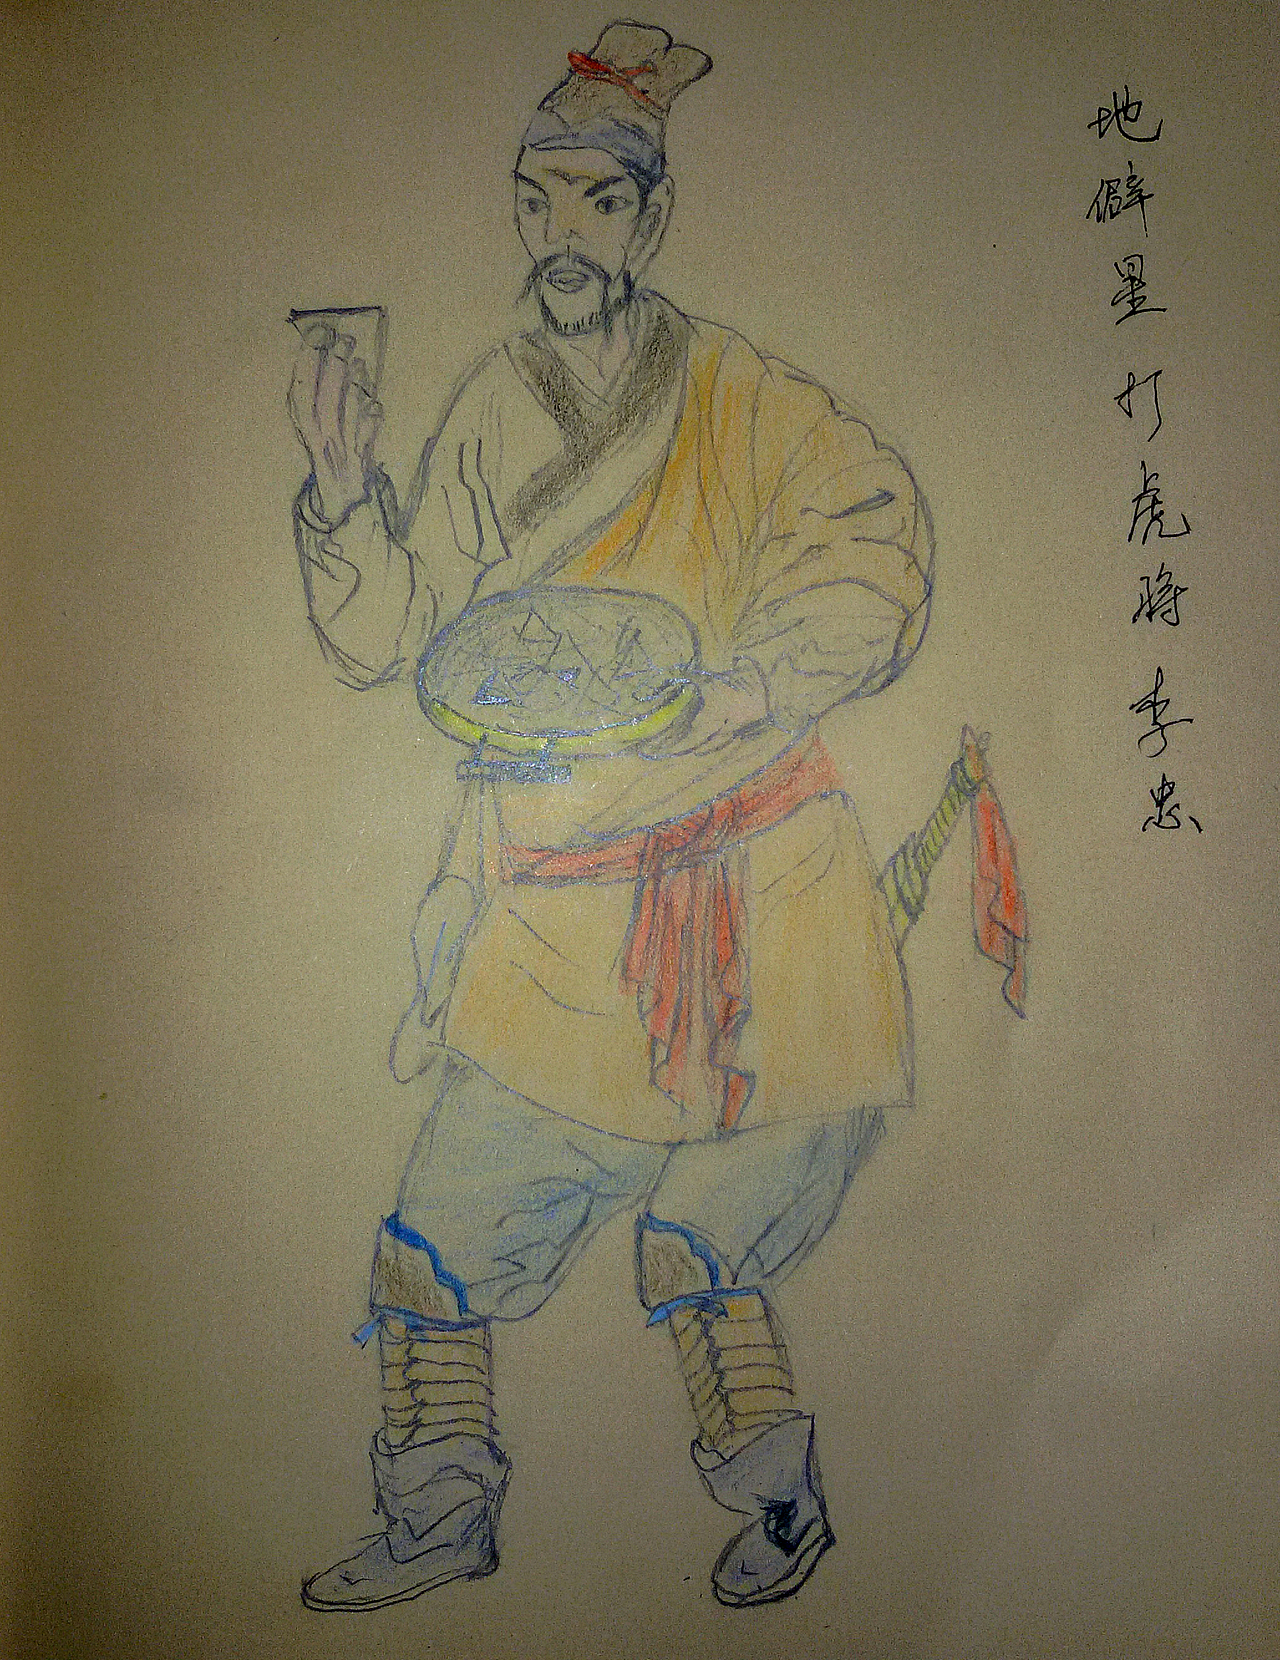 地僻星 打虎将 李忠